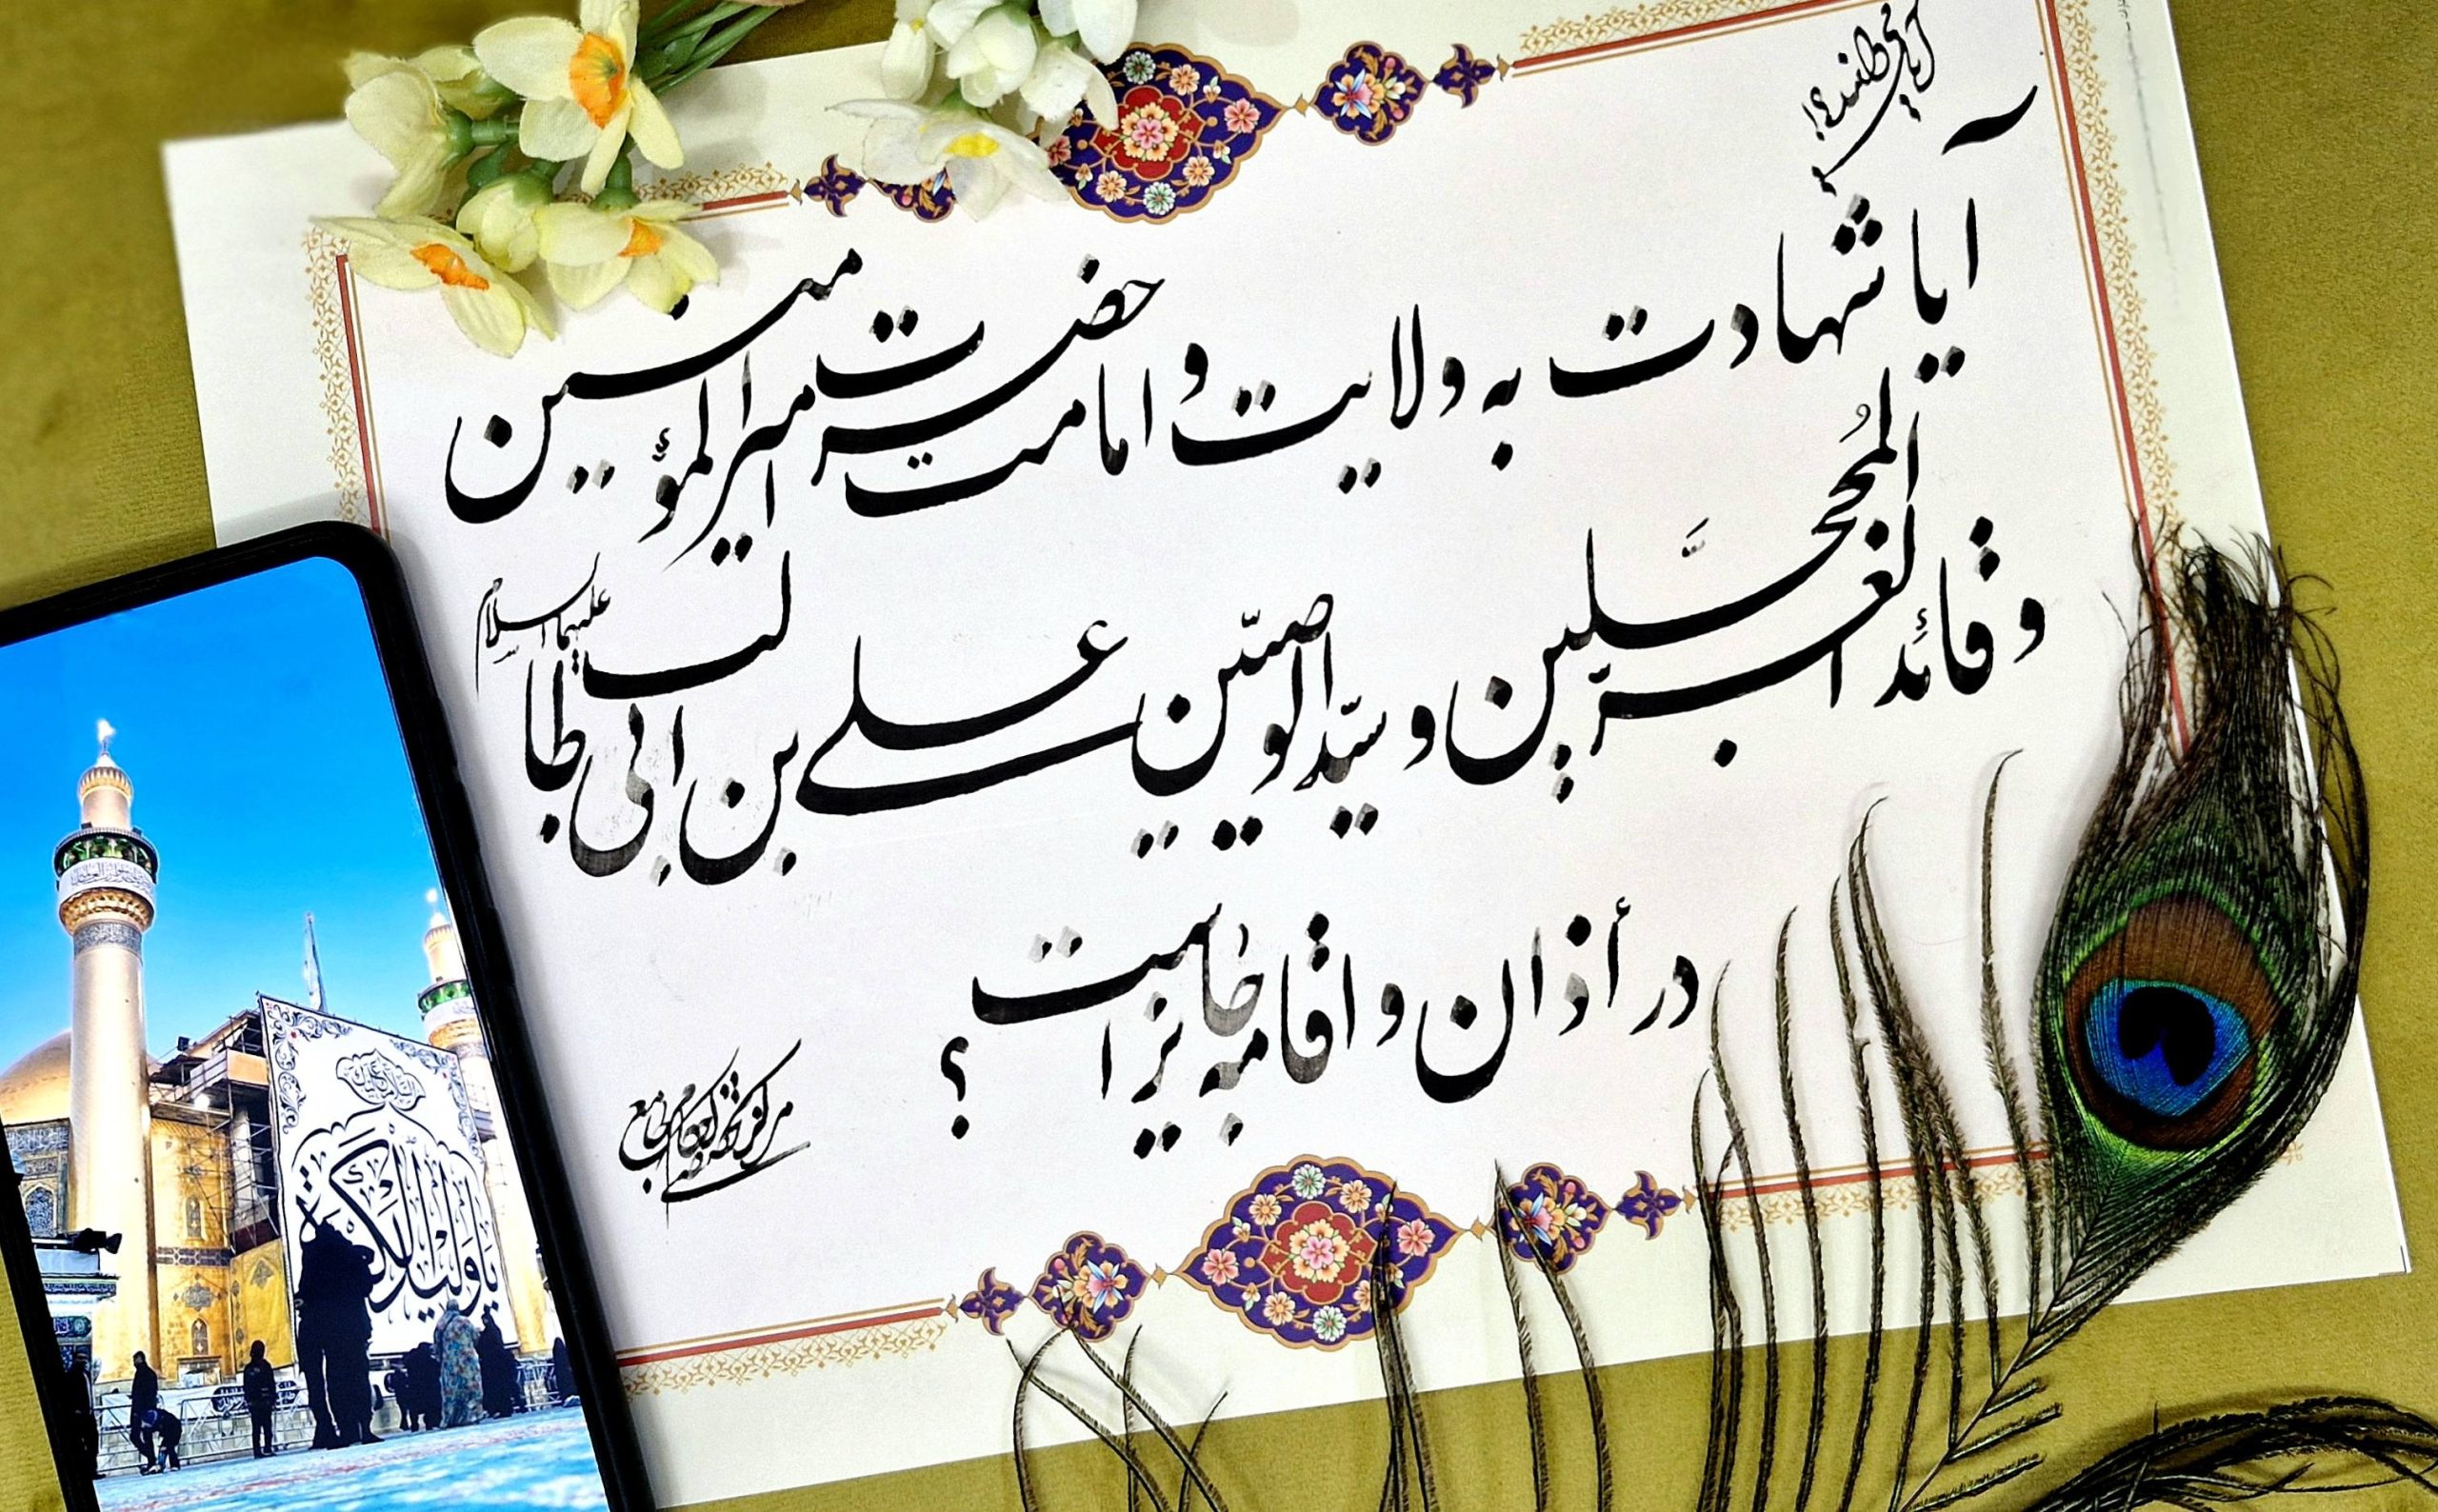 آیا شهادت به ولایت و امامت حضرت امیرالمؤمنین
و قائِد الغرّ المُحجَّلین و سیّد الوصیّین علی بن ابی طالب علیهماالسلام
در أذان و اقامه جائز است
؟
مرکز تحقیقی
یا ولی الله